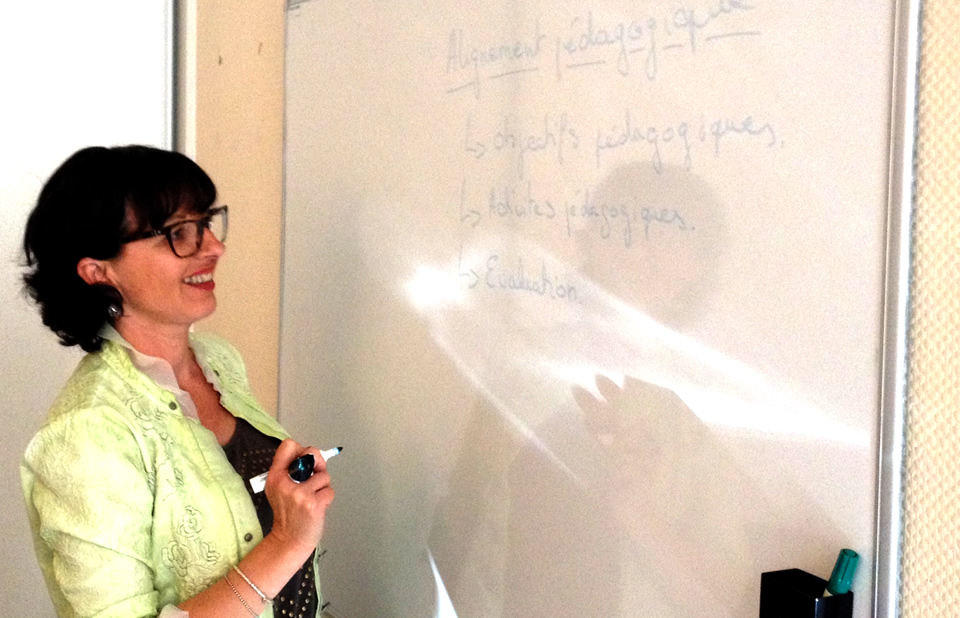 Alignement pédagogique
↳ objectifs pédagogiques.
↳ Activités pédagogiques.
↳ Evaluation.